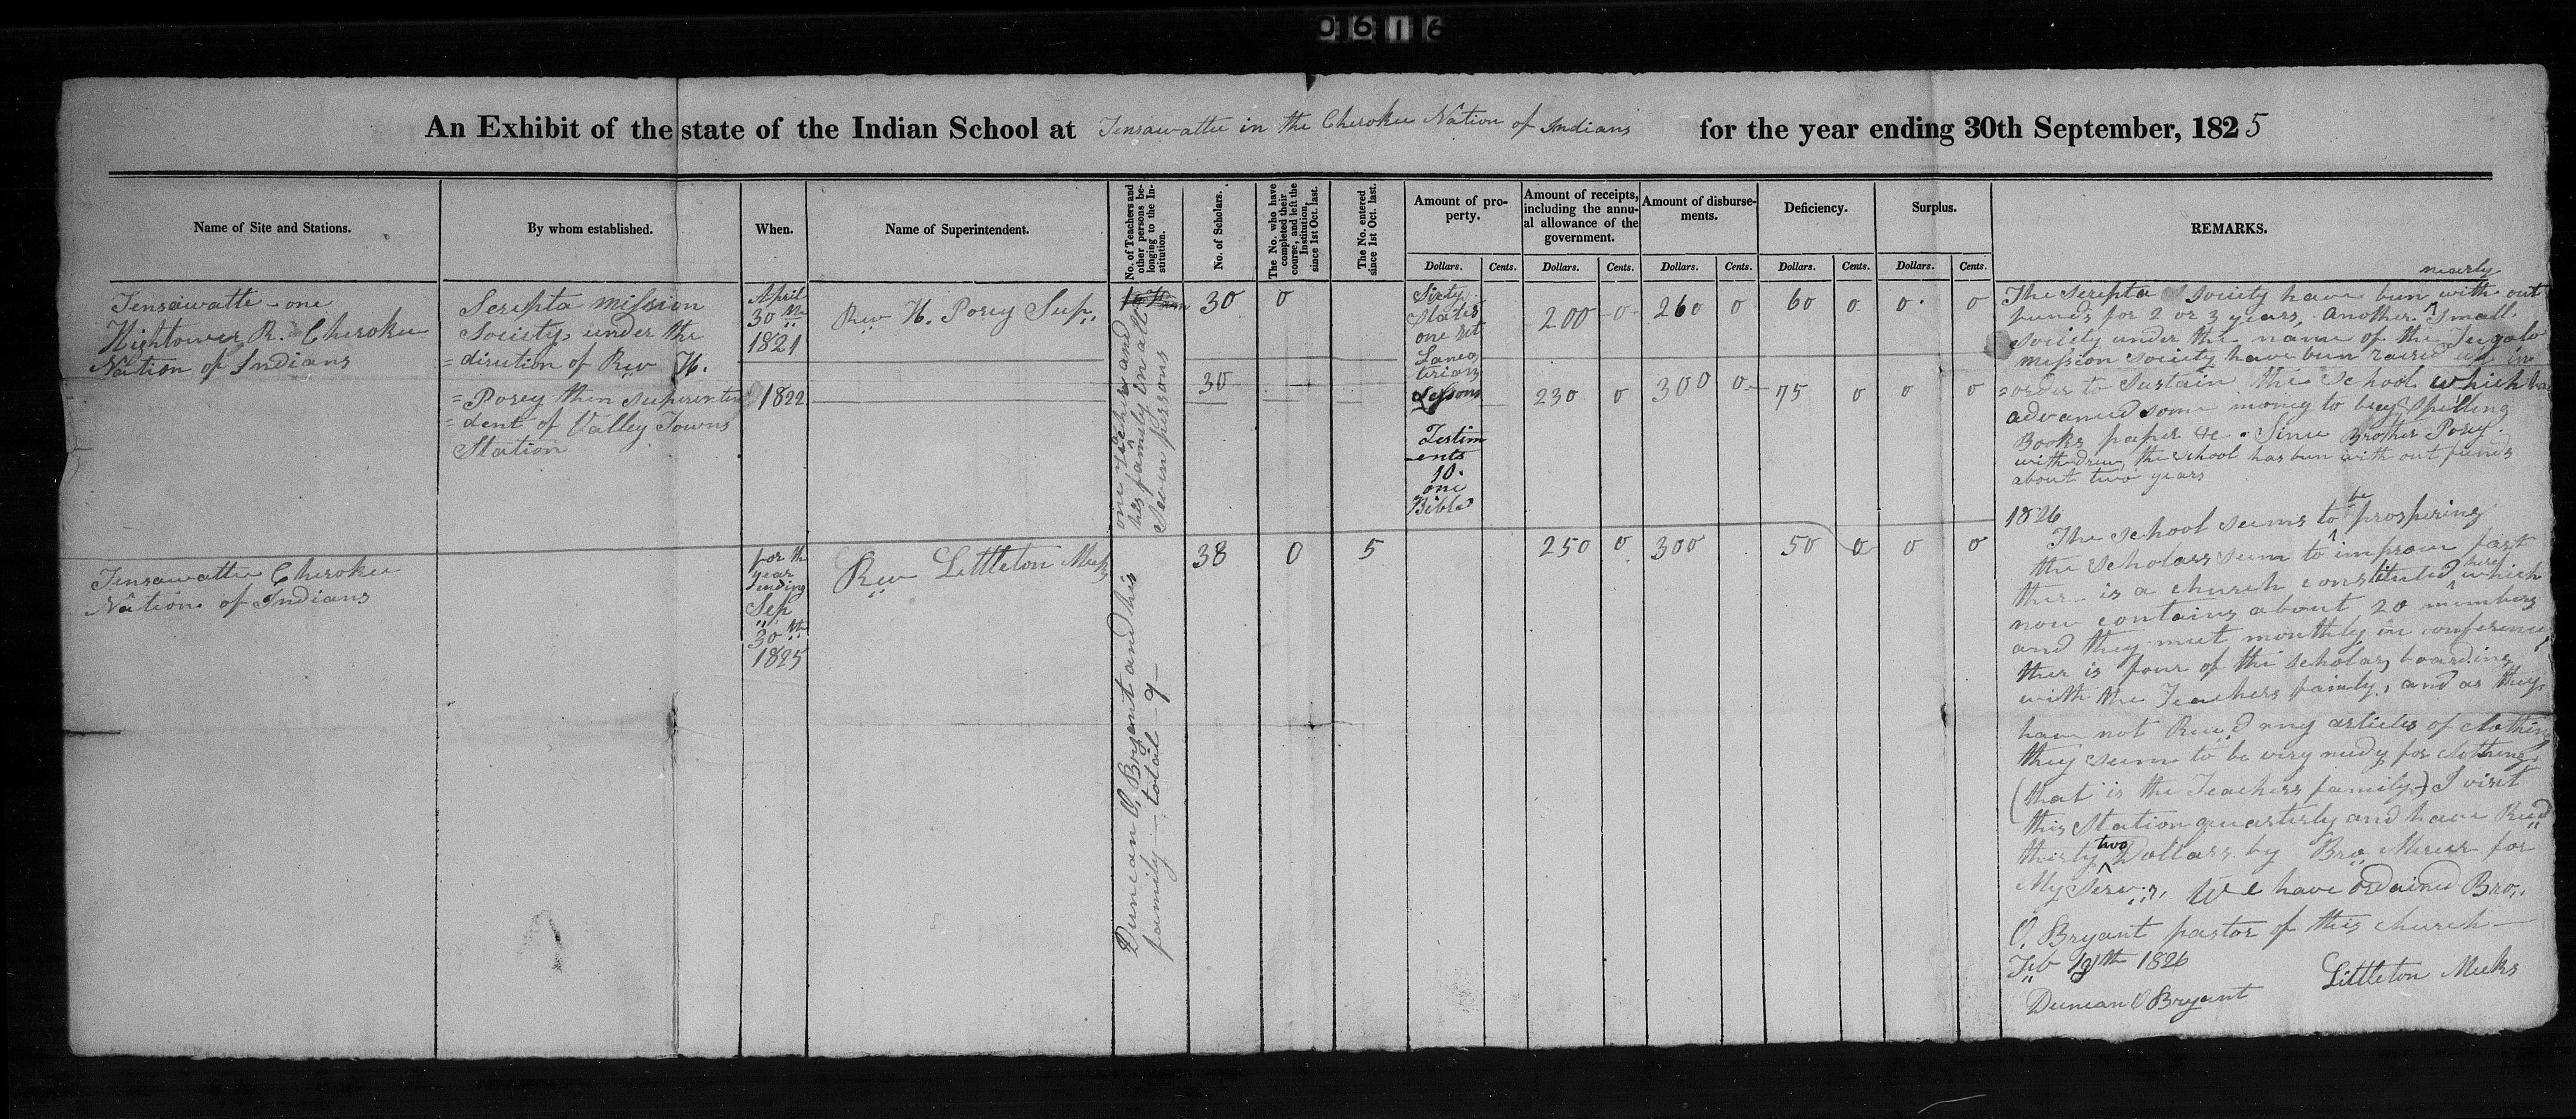 0616
An Exhibit of the state of the Indian School at Tensawattee in the Cherokee Nation of Indians for the year ending 30th September, 1825
Name of Site and Stations.
By whom established.
When.
Name of Superintendent.
No. of Teachers and
other persons be-
longing to the In-
stitution.
No. of Scholars.
The No. who have
completed their
course, and left the
Institution,
since 1st Oct. last.
The No. entered
since 1st Oct. last.
Amount of pro-
perty.
Amount of receipts,
including the annu-
al allowance of the
government.
Amount of disburse-
ments.
Deficiency.
Surplus.
REMARKS.
Dollars. Cents. Dollars. Cents. Dollars. Cents. Dollars. Cents. Dollars. Cents.
Tensawatte - one
Hightower R. Cherokee
Nation of Indians
Serepta Mission
Society, under the
= direction of Rev H.
= Posey then superinten
= dent of Valley Towns
Station
April
30th
1821
1822
Rev H. Posey Sup.
one Teacher and
his family in all
Seven persons
30
30
0
Sixty
Slates
one set
Lanca
terian
Lessons
Testim
ents
10.
one
Bible
200 0 260 0 60 0 0 0
230 0 300 0 75 0 0 0
The Serepta Society have been nearly with out
funds for 2 or 3 years, another small
society under the name of the Tugalo
mission society have been raised in
= order to sustain the School which has
advanced some money to buy Spelling
Books paper &c. Since Brother Posey
withdrew, the School has been with out funds
about two years
Tensawattee Cherokee
Nation of Indians
for the
year
ending
Sep
30th
1825
Rev Littleton Meeks
Duncan O. Bryant and his
family — total — 9 —
38 0 5
250 0 300 50 0 0 0
1826
The School seems to be prospering
the Scholars seem to improve fast
there is a church constituted here which
now contains about 20 members
and they meet monthly in conference
ther is four of the scholars boarding
with the Teachers family, and as they
have not Recd any articles of clothing
they seem to be very needy for clothing
(that is the Teachers family) I visit
this Station quarterly and have Recd
thirty two Dollars by Bro Mercer for
My Serv. We have ordained Bro.
O. Bryant pastor of this church —
Feb 1826
Littleton Meeks
Duncan O Bryant